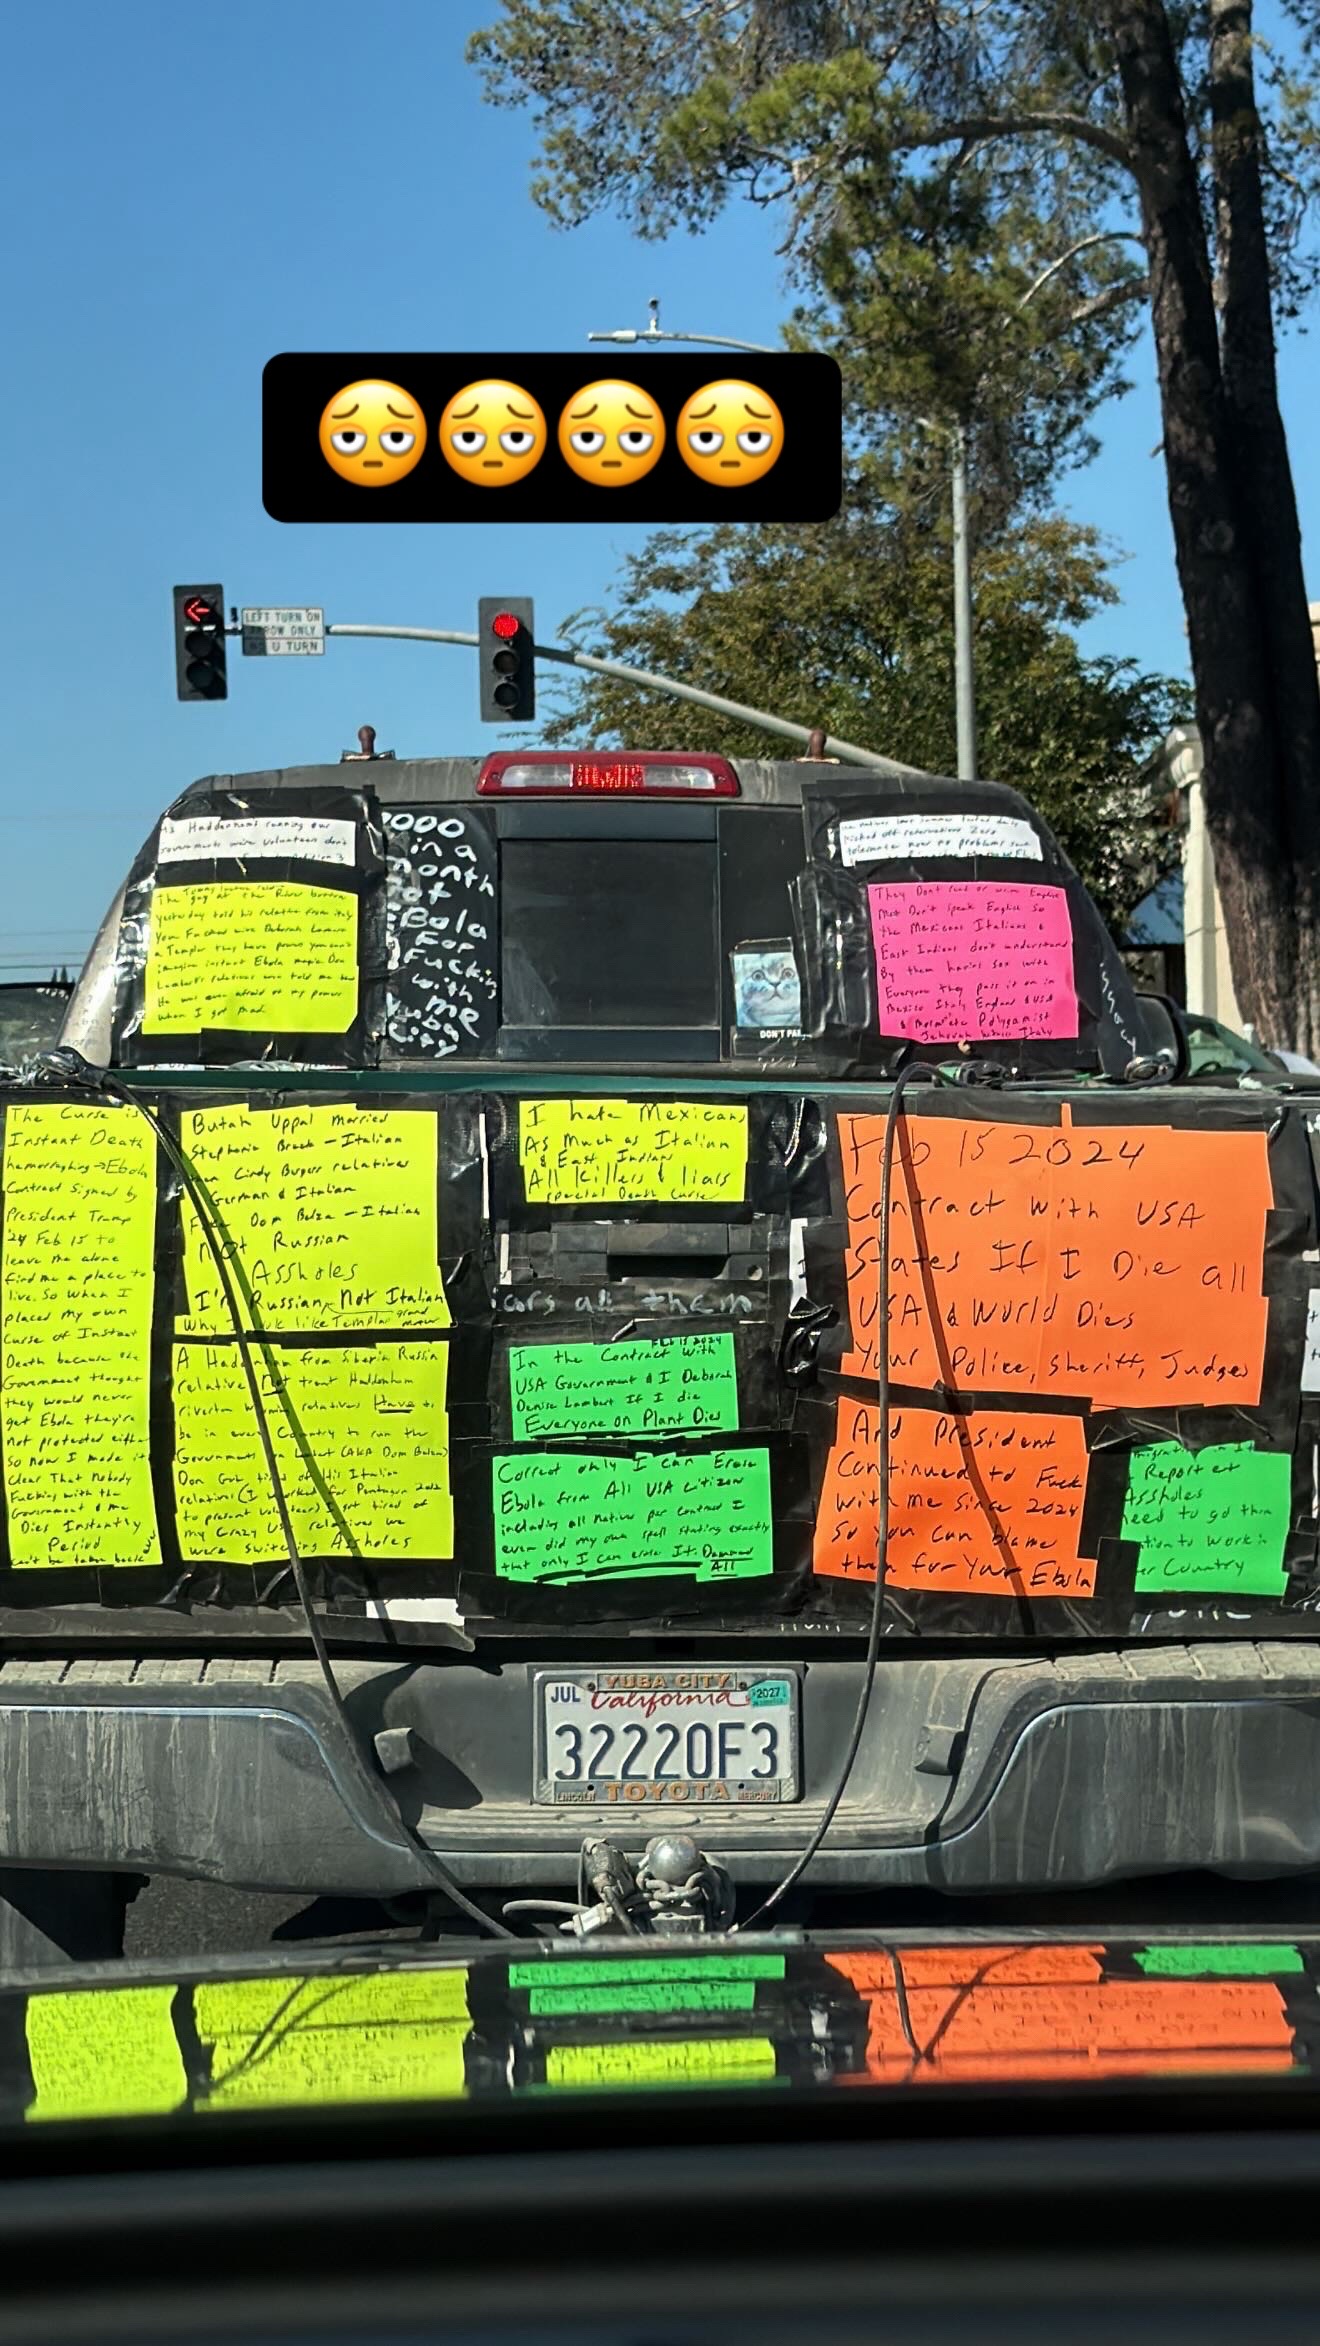 LEFT TURN ON
ARROW ONLY
NO U TURN
Haddenham running our
governments were volunteers don't
The guy at the River bottom
yesterday told his relative from italy
You Fucked with Deborah Lambert
a Templar they have powers you can't
imagine instant Ebola magic Don
Lambert's relatives won told me that
He was even afraid of my powers
when I got mad
2000
in a
month
got
EBola
For
Fucking
with
me
Yuba
City
DON'T PA
Kicked off reservations Zero
They Don't read or write English
Most Don't speak English So
the Mexicans Italians &
East Indians don't understand
By them having sex with
Everyone they pass it on in
Mexico Italy England & USA
& Polygamist
Jehovah Witness Italy
The Curse is
Instant Death
hemorraghing → Ebola
Contract Signed by
President Trump
'24 Feb 15 to
leave me alone
find me a place to
live. So when I
placed my own
Curse of Instant
Death because the
Government thought
they would never
get Ebola they're
not protected either
So now I made it
clear That Nobody
Fucking with the
Government & me
Dies Instantly
Period
can't be taken back
Butah Uppal married
Stephanie Brack - Italian
then Cindy Burgess relatives
German & Italian
Fake Dom Balza - Italian
Not Russian
Assholes
I'm Russian, Not Italian
Why I look like Templar grand
A Haddenham from Siberia Russia
relative Not trent Haddenham
riverton Wyoming relatives Have to
be in every Country to run the
Government Lambert (AKA Dom Balza)
Don Got tired of His Italian
relatives (I worked for Pentagon 2012
to present volunteer) I got tired of
my Crazy USA relatives we
were switching Assholes
I hate Mexicans
As Much as Italian
& East Indians
All Killers & liars
special Death Curse
all them
Feb 15 2024
In the Contract with
USA Government & I Deborah
Denise Lambert If I die
Everyone on Plant Dies
Correct only I can Erase
Ebola from All USA citizen
including all native per contract I
even did my own spell stating exactly
that only I can erase It. Damned
All
Feb 15 2024
Contract with USA
States If I Die all
USA & World Dies
Your Police, Sheriff, Judges
And President
Continued to Fuck
with me since 2024
So you can blame
them for Your Ebola
migration
Report et
Assholes
need to go them
to work in
Country
JUL
YUBA CITY
California
2027
32220F3
LINCOLN TOYOTA MERCURY